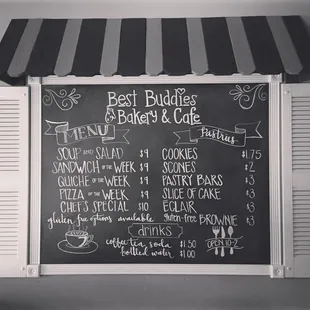 Best Buddies
Bakery & Cafe
MENU
SOUP AND SALAD $9
SANDWICH OF THE WEEK $9
QUICHE OF THE WEEK $9
PIZZA OF THE WEEK $9
CHEF'S SPECIAL $10
gluten free options available
Pastries
COOKIES $1.75
SCONES $2
PASTRY BARS $3
SLICE OF CAKE $3
ECLAIR $3
gluten-free BROWNIE $3
drinks
coffee, tea, soda $1.50
bottled water $1.00
OPEN 10-7